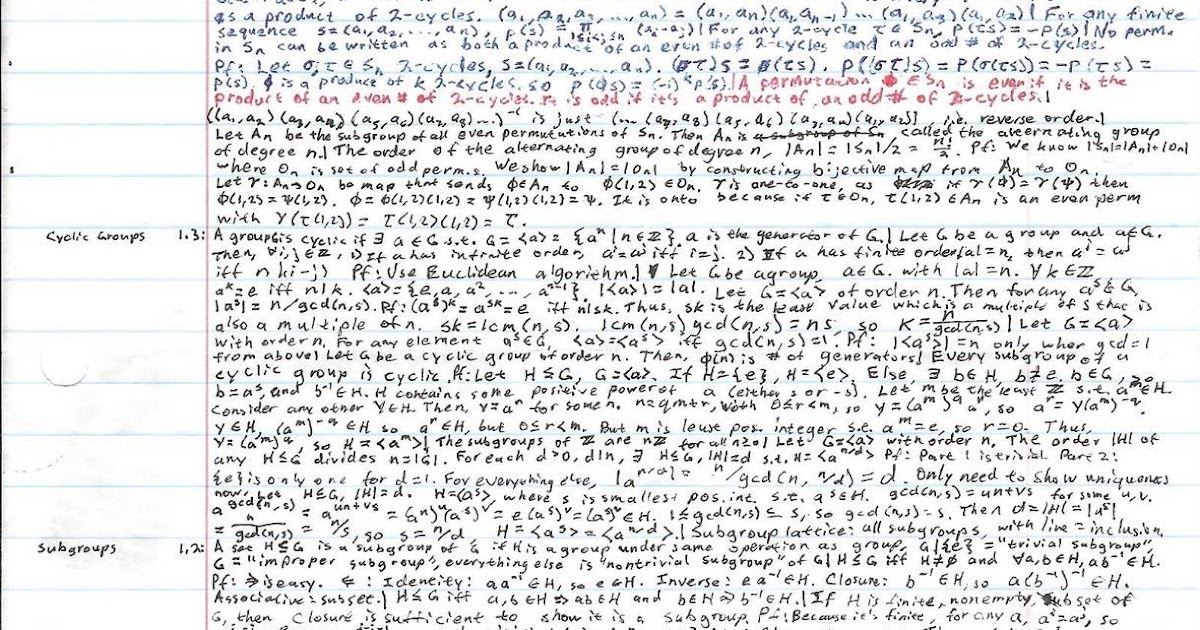 as a product of 2-cycles. (a₁,a₂,a₃,...,aₙ) = (a₁,aₙ)(a₁,aₙ₋₁)...(a₁,a₃)(a₁,a₂)| For any finite
sequence s=(a₁,a₂,...,aₙ), p(s) = π 1≤i<j≤n (aᵢ-aⱼ)| For any 2-cycle τ∈Sₙ, P(τs)=-P(s)| No perm.
in Sₙ can be written as both a product of an even # of 2-cycles and an odd # of 2-cycles.
Pf: Let σ,τ∈Sₙ 2-cycles, s=(a₁,a₂,...,aₙ). (στ)s = σ(τs). P((στ)s)=P(σ(τs))=-P(τs)=
P(s). ϕ is a product of k 2-cycles, so P(ϕs)=(-1)ᵏP(s).| A permutation ϕ∈Sₙ is even if it is the
product of an even # of 2-cycles. It is odd if it's a product of an odd # of 2-cycles.|
((a₁,a₂)(a₃,a₄)(a₅,a₆)(a₇,a₈)...)⁻¹ is just (...(a₇,a₈)(a₅,a₆)(a₃,a₄)(a₁,a₂)), i.e. reverse order.|
Let Aₙ be the subgroup of all even permutations of Sₙ. Then Aₙ is a subgroup of Sₙ, called the alternating group
of degree n.| The order of the alternating group of degree n, |Aₙ| = |Sₙ|/2 = n!/2. Pf: We know |Sₙ|=|Aₙ|+|Oₙ|
where Oₙ is set of odd perms. We show |Aₙ|=|Oₙ| by constructing bijective map from Aₙ to Oₙ.
Let γ:Aₙ→Oₙ be map that sends ϕ∈Aₙ to ϕ(1,2)∈Oₙ. γ is one-to-one, as if γ(ϕ)=γ(ψ) then
ϕ(1,2)=ψ(1,2). ϕ=ϕ(1,2)(1,2)=ψ(1,2)(1,2)=ψ. It is onto because if τ∈Oₙ, τ(1,2)∈Aₙ is an even perm
with γ(τ(1,2)) = τ(1,2)(1,2) = τ.
Cyclic Groups 1.3: A group G is cyclic if ∃ a∈G s.t. G=<a>={aⁿ|n∈ℤ}. a is the generator of G.| Let G be a group and a∈G.
Then, ∀i,j∈ℤ, 1) If a has infinite order, aⁱ=aʲ iff i=j. 2) If a has finite order |a|=n, then aⁱ=aʲ
iff n|(i-j) Pf: Use Euclidean algorithm.| Let G be a group, a∈G. with |a|=n. ∀k∈ℤ,
aᵏ=e iff n|k. <a>={e,a,a²,...,aⁿ⁻¹}. |<a>|=|a|. Let G=<a> of order n. Then for any aˢ∈G,
|aˢ|=n/gcd(n,s). Pf: (aˢ)ᵏ=aˢᵏ=e iff n|sk. Thus, sk is the least value which is a multiple of s that is
also a multiple of n. sk=lcm(n,s). lcm(n,s)gcd(n,s)=ns, so k=n/gcd(n,s)| Let G=<a>
with order n. For any element aˢ∈G, <a>=<aˢ> iff gcd(n,s)=1. Pf: |<aˢ>|=n only when gcd=1
from above| Let G be a cyclic group of order n. Then, ϕ(n) is # of generators| Every subgroup of a
cyclic group is cyclic. Pf: Let H≤G, G=<a>. If H={e}, H=<e>. Else, ∃ b∈H, b≠e, b∈G, so
b=aˢ, and b⁻¹∈H. H contains some positive power of a (either s or -s). Let m be the least ℤ s.t. aᵐ∈H.
Consider any other y∈H. Then, y=aⁿ for some n. n=qm+r, with 0≤r<m, so y=(aᵐ)^q aʳ, so aʳ=y(aᵐ)^-q.
y∈H, (aᵐ)^-q∈H so aʳ∈H, but 0≤r<m. But m is least pos. integer s.t. aᵐ=e, so r=0. Thus,
y=(aᵐ)^q, so H=<aᵐ>| The subgroups of ℤ are nℤ for all n≥0| Let G=<a> with order n. The order |H| of
any H≤G divides n=|G|. For each d>0, d|n, ∃ H≤G, |H|=d s.t. H=<a^(n/d)> Pf: Part 1 is trivial. Part 2:
{e} is only one for d=1. For everything else, |a^(n/d)|=n/gcd(n,n/d)=d. Only need to show uniqueness
now. Let H≤G, |H|=d. H=<aˢ>, where s is smallest pos. int. s.t. aˢ∈H. gcd(n,s)=un+vs for some u,v.
a^gcd(n,s)=a^(un+vs)=(aⁿ)ᵘ(aˢ)ᵛ=e(aˢ)ᵛ=(aˢ)ᵛ∈H. 1≤gcd(n,s)≤s, so gcd(n,s)=s. Then d=|H|=|aˢ|
=n/gcd(n,s)=n/s, so s=n/d, H=<aˢ>=<a^(n/d)>| Subgroup lattice: all subgroups, with line=inclusion.
Subgroups 1.2: A set H≤G is a subgroup of G if H is a group under same operation as group. G|{e}="trivial subgroup",
G="improper subgroup", everything else is "nontrivial subgroup" of G| H≤G iff H≠∅ and ∀a,b∈H, ab⁻¹∈H.
Pf: ⇒ is easy. ⇐: Identity: aa⁻¹∈H, so e∈H. Inverse: ea⁻¹∈H. Closure: b⁻¹∈H, so a(b⁻¹)⁻¹∈H.
Associative: subset.| H≤G iff a,b∈H⇒ab∈H and b∈H⇒b⁻¹∈H.| If H is finite, nonempty, subset of
G, then closure is sufficient to show it is a subgroup. Pf: Because it's finite, for any a, aⁱ=aʲ, so